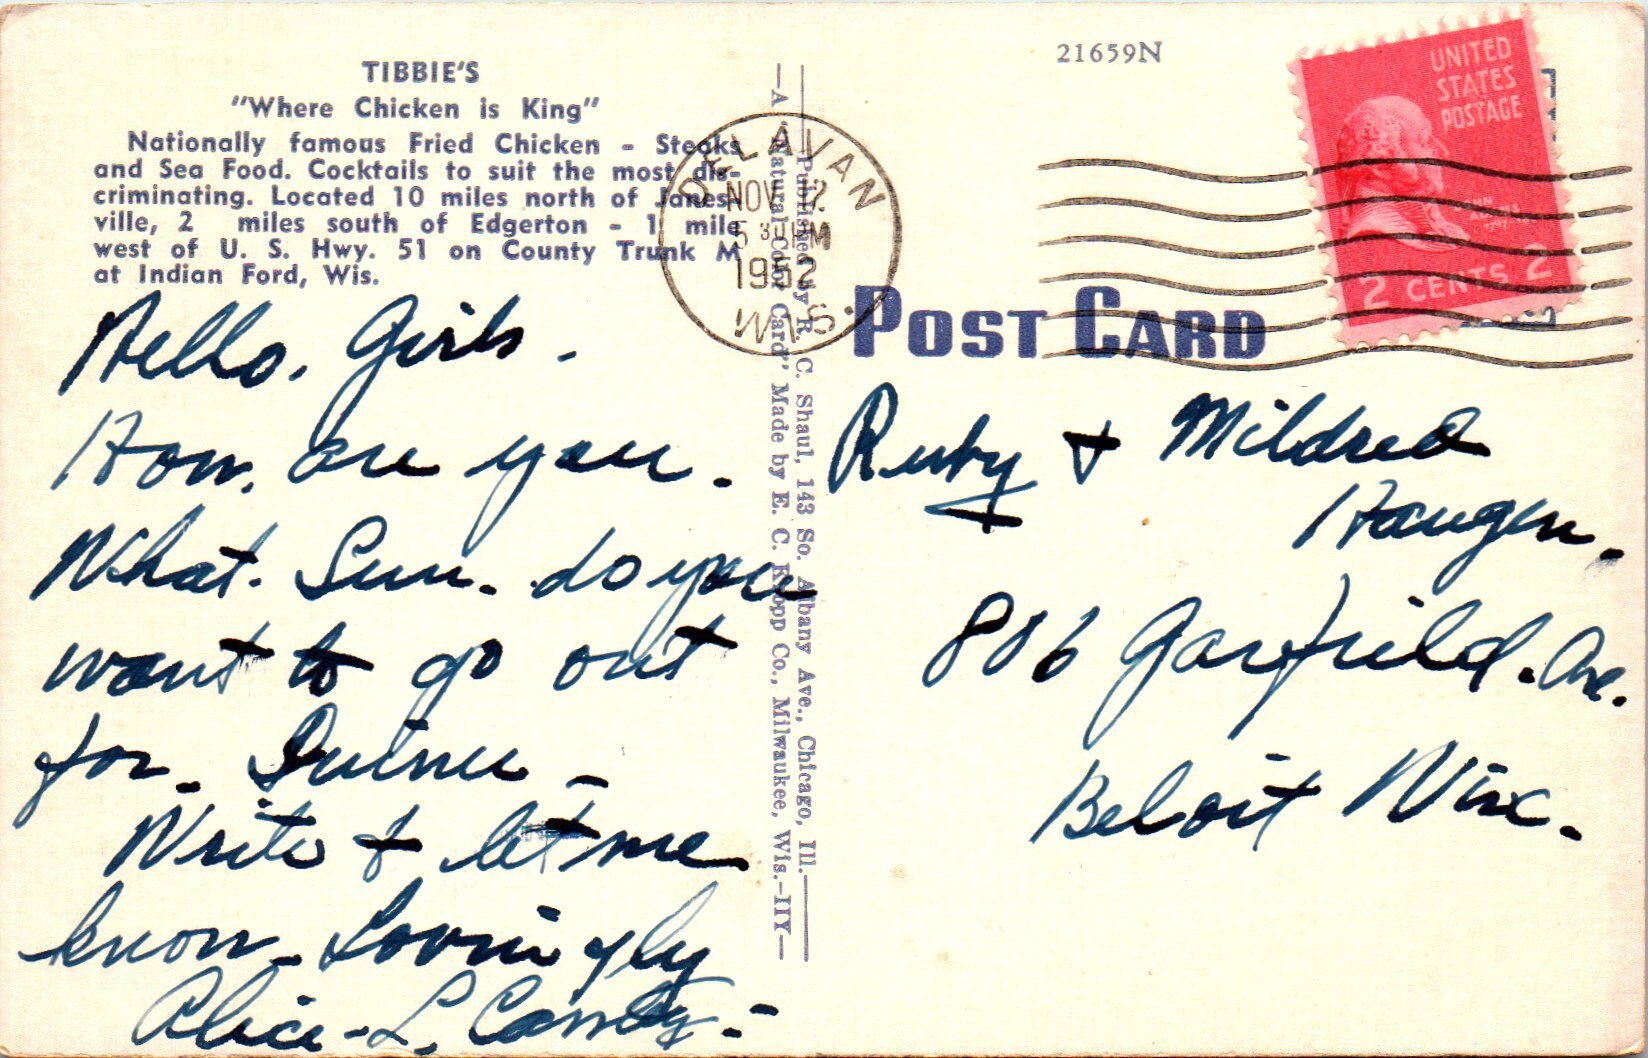 TIBBIE'S
"Where Chicken is King"
Nationally famous Fried Chicken - Steaks
and Sea Food. Cocktails to suit the most dis-
criminating. Located 10 miles north of Janes-
ville, 2 miles south of Edgerton - 1 mile
west of U. S. Hwy. 51 on County Trunk M
at Indian Ford, Wis.
Hello, Girls -
How, are you.
What. Sun. do you
want to go out
for. Dinner -
Write & let me
know - Lovingly
Alice - L.
Published by R. C. Shaul, 143 So. Albany Ave., Chicago, Ill.
—A "Natural Color Card" Made by E. C. Kropp Co., Milwaukee, Wis.—IIY—
21659N
DELAVAN
NOV 12
5 30 PM
1952
WIS.
UNITED
STATES
POSTAGE
JOHN
ADAMS
1797
2 CENTS 2
POST CARD
Ruby & Mildred
Haugen.
806 Garfield. Ave.
Beloit Wisc.